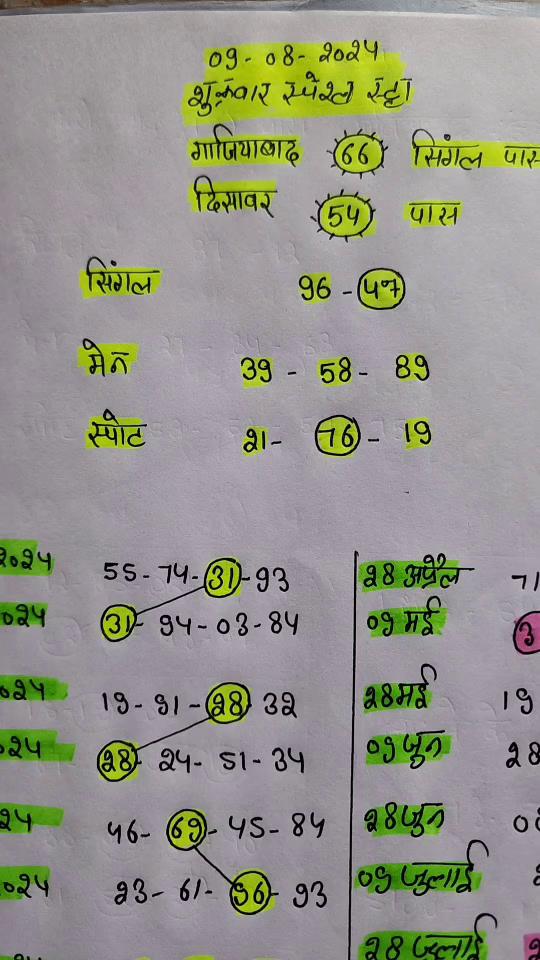 09-08-2024
शुक्रवार स्पेशल सट्टा
गाजियाबाद 66 सिंगल पास
दिसावर 54 पास
सिंगल 96 - 47
मेन 39 - 58 - 89
स्पोट 21 - 76 - 19
2024 55 - 74 - 31 - 93
024 31 - 94 - 03 - 84
024 19 - 91 - 28 - 32
024 28 - 24 - 51 - 34
24 46 - 69 - 45 - 84
024 23 - 61 - 96 - 93
28 अप्रैल 71
09 मई 3
28 मई 19
09 जून 28
28 जून 0
09 जुलाई
28 जुलाई